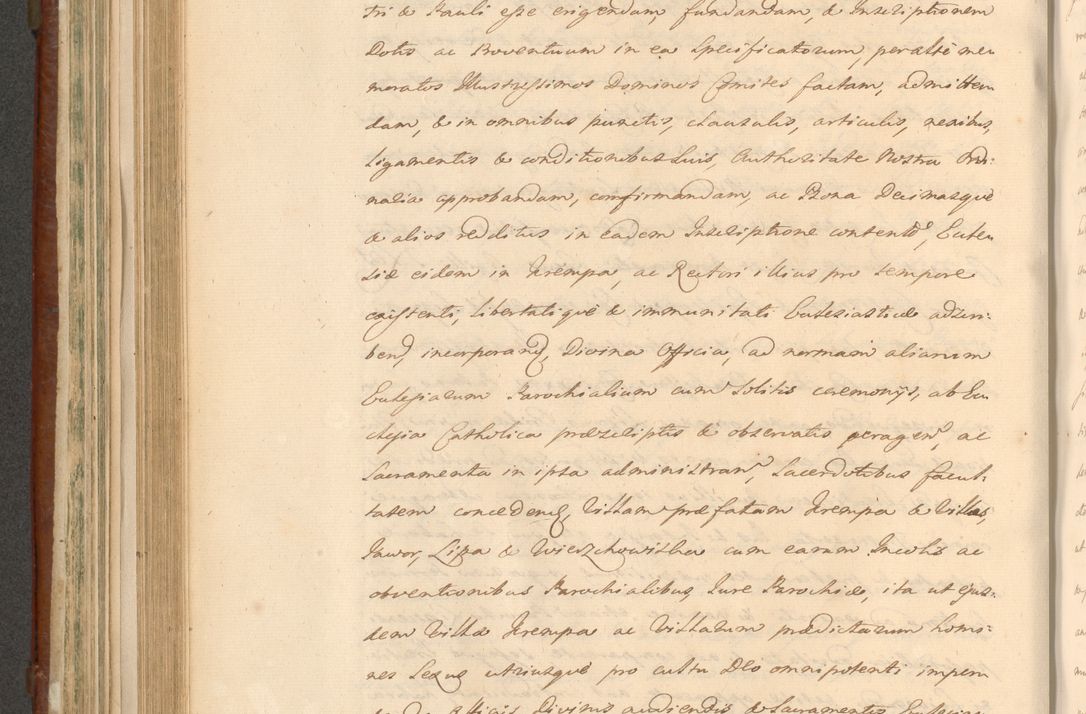 tri & Pauli esse erigendam, fundandam, & Inscriptionem
Dotis ac Proventuum in ea specificatorum, per altè me¬
moratos Illustrissimos Dominos Comites factam, admitten
dam, & in omnibus punctis, clausulis, articulis, nexibus,
Ligamentis & conditionibus suis, Authoritate Nostra Ordi:
naria approbandam, confirmandam, ac Bona Decimasque
& alios redditus in eadem Inscriptione content', Eccle¬
siæ eidem in Krempa, ac Rectori illius pro tempore
existenti, libertatiquè & immunitati Ecclesiasticæ adscri:
bend, incorporand, Divina Officia, ad normam aliarum
Ecclesiarum Parochialium cum solitis ceremonijs, ab Ec¬
clesia Catholica præscriptis & observatis peragen', ac
Sacramenta in ipsa administran', Sacerdotibus facul:
tatem concedend, Villam præfatam Krempa & Villas,
Jawor, Liza & Wierzchowiska cum earum Incolis ac
obventionibus Parochialibus, Jure Parochiæ, ita ut ejus:
dem Villæ Krempa ac Villarum prædictarum homi:
nes Sexus utriusquè pro cultu Deo omnipotenti impen
Officijs Divinis audiendis & Sacramentis